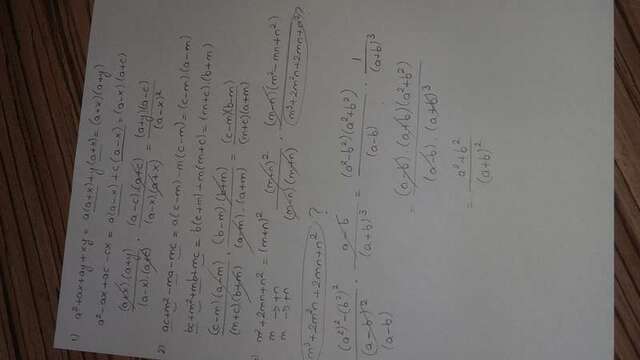 1) a²+ax+ay+xy = a(a+x)+y(a+x) = (a+x)(a+y)
a²-ax+ac-cx = a(a-x)+c(a-x) = (a-x)(a+c)
(a+x)(a+y)/(a-x).(a+c) . (a-c).(a+c)/(a-x)(a+x) = (a+y)(a-c)/(a-x)²
2) ac+m²-ma-mc = a(c-m)-m(c-m) = (c-m)(a-m)
bc+m²+mb+mc = b(c+m)+m(m+c) = (m+c).(b+m)
(c-m)(a-m)/(m+c)(b+m) . (b-m).(b+m)/(a-m).(a+m) = (c-m)(b-m)/(m+c)(a+m)
m²+2mn+n² = (m+n)² (m+n)²/(m-n)(m+n) . (m-n)(m²-mn+n²)/(m³+2m²n+2mn+n²)?
m → +n
m → +n
m³+2m²n+2mn+n² ?
(a²)²-(b²)²/(a-b)²/(a-b) . a-b/(a+b)³ = (a²-b²)(a²+b²)/(a-b) . 1/(a+b)³
= (a-b).(a+b)(a²+b²)/(a-b).(a+b)³
= a²+b²/(a+b)²